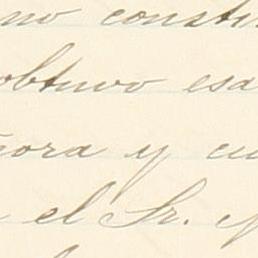 no constit
obtuvo esa
ñora y cu
el Sr. y